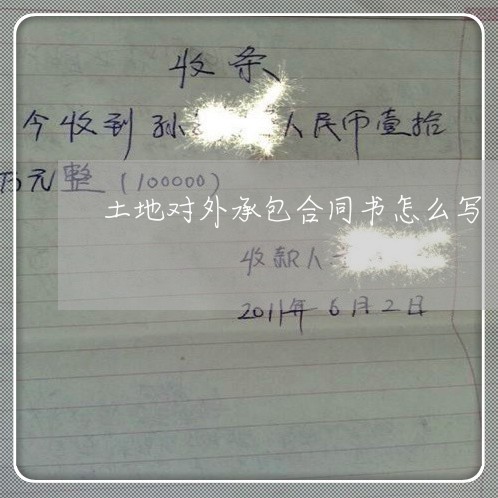 收条
今收到孙 人民币壹拾
万元整(100000)
土地对外承包合同书怎么写
收款人
2011年6月2日